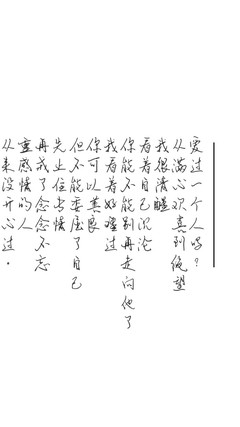 爱过一个人吗？
从满心欢喜到绝望
我很清醒
看着自己沉沦
你能不能别再走向他了
我看着好难过
你可以善良
但不能委屈了自己
先止住
再戒了念念不忘
重感情的人
从来没开心过.